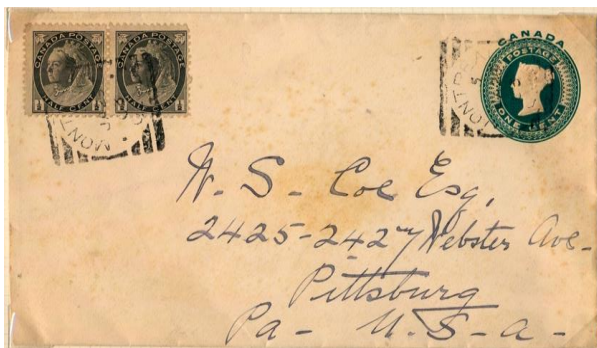 CANADA POSTAGE
HALF CENT
CANADA POSTAGE
HALF CENT
MONT
CANADA
POSTAGE
ONE CENT
W. S - Coe Esq,
2425-2427 Webster Ave-
Pittsburg
Pa - U-S-a-